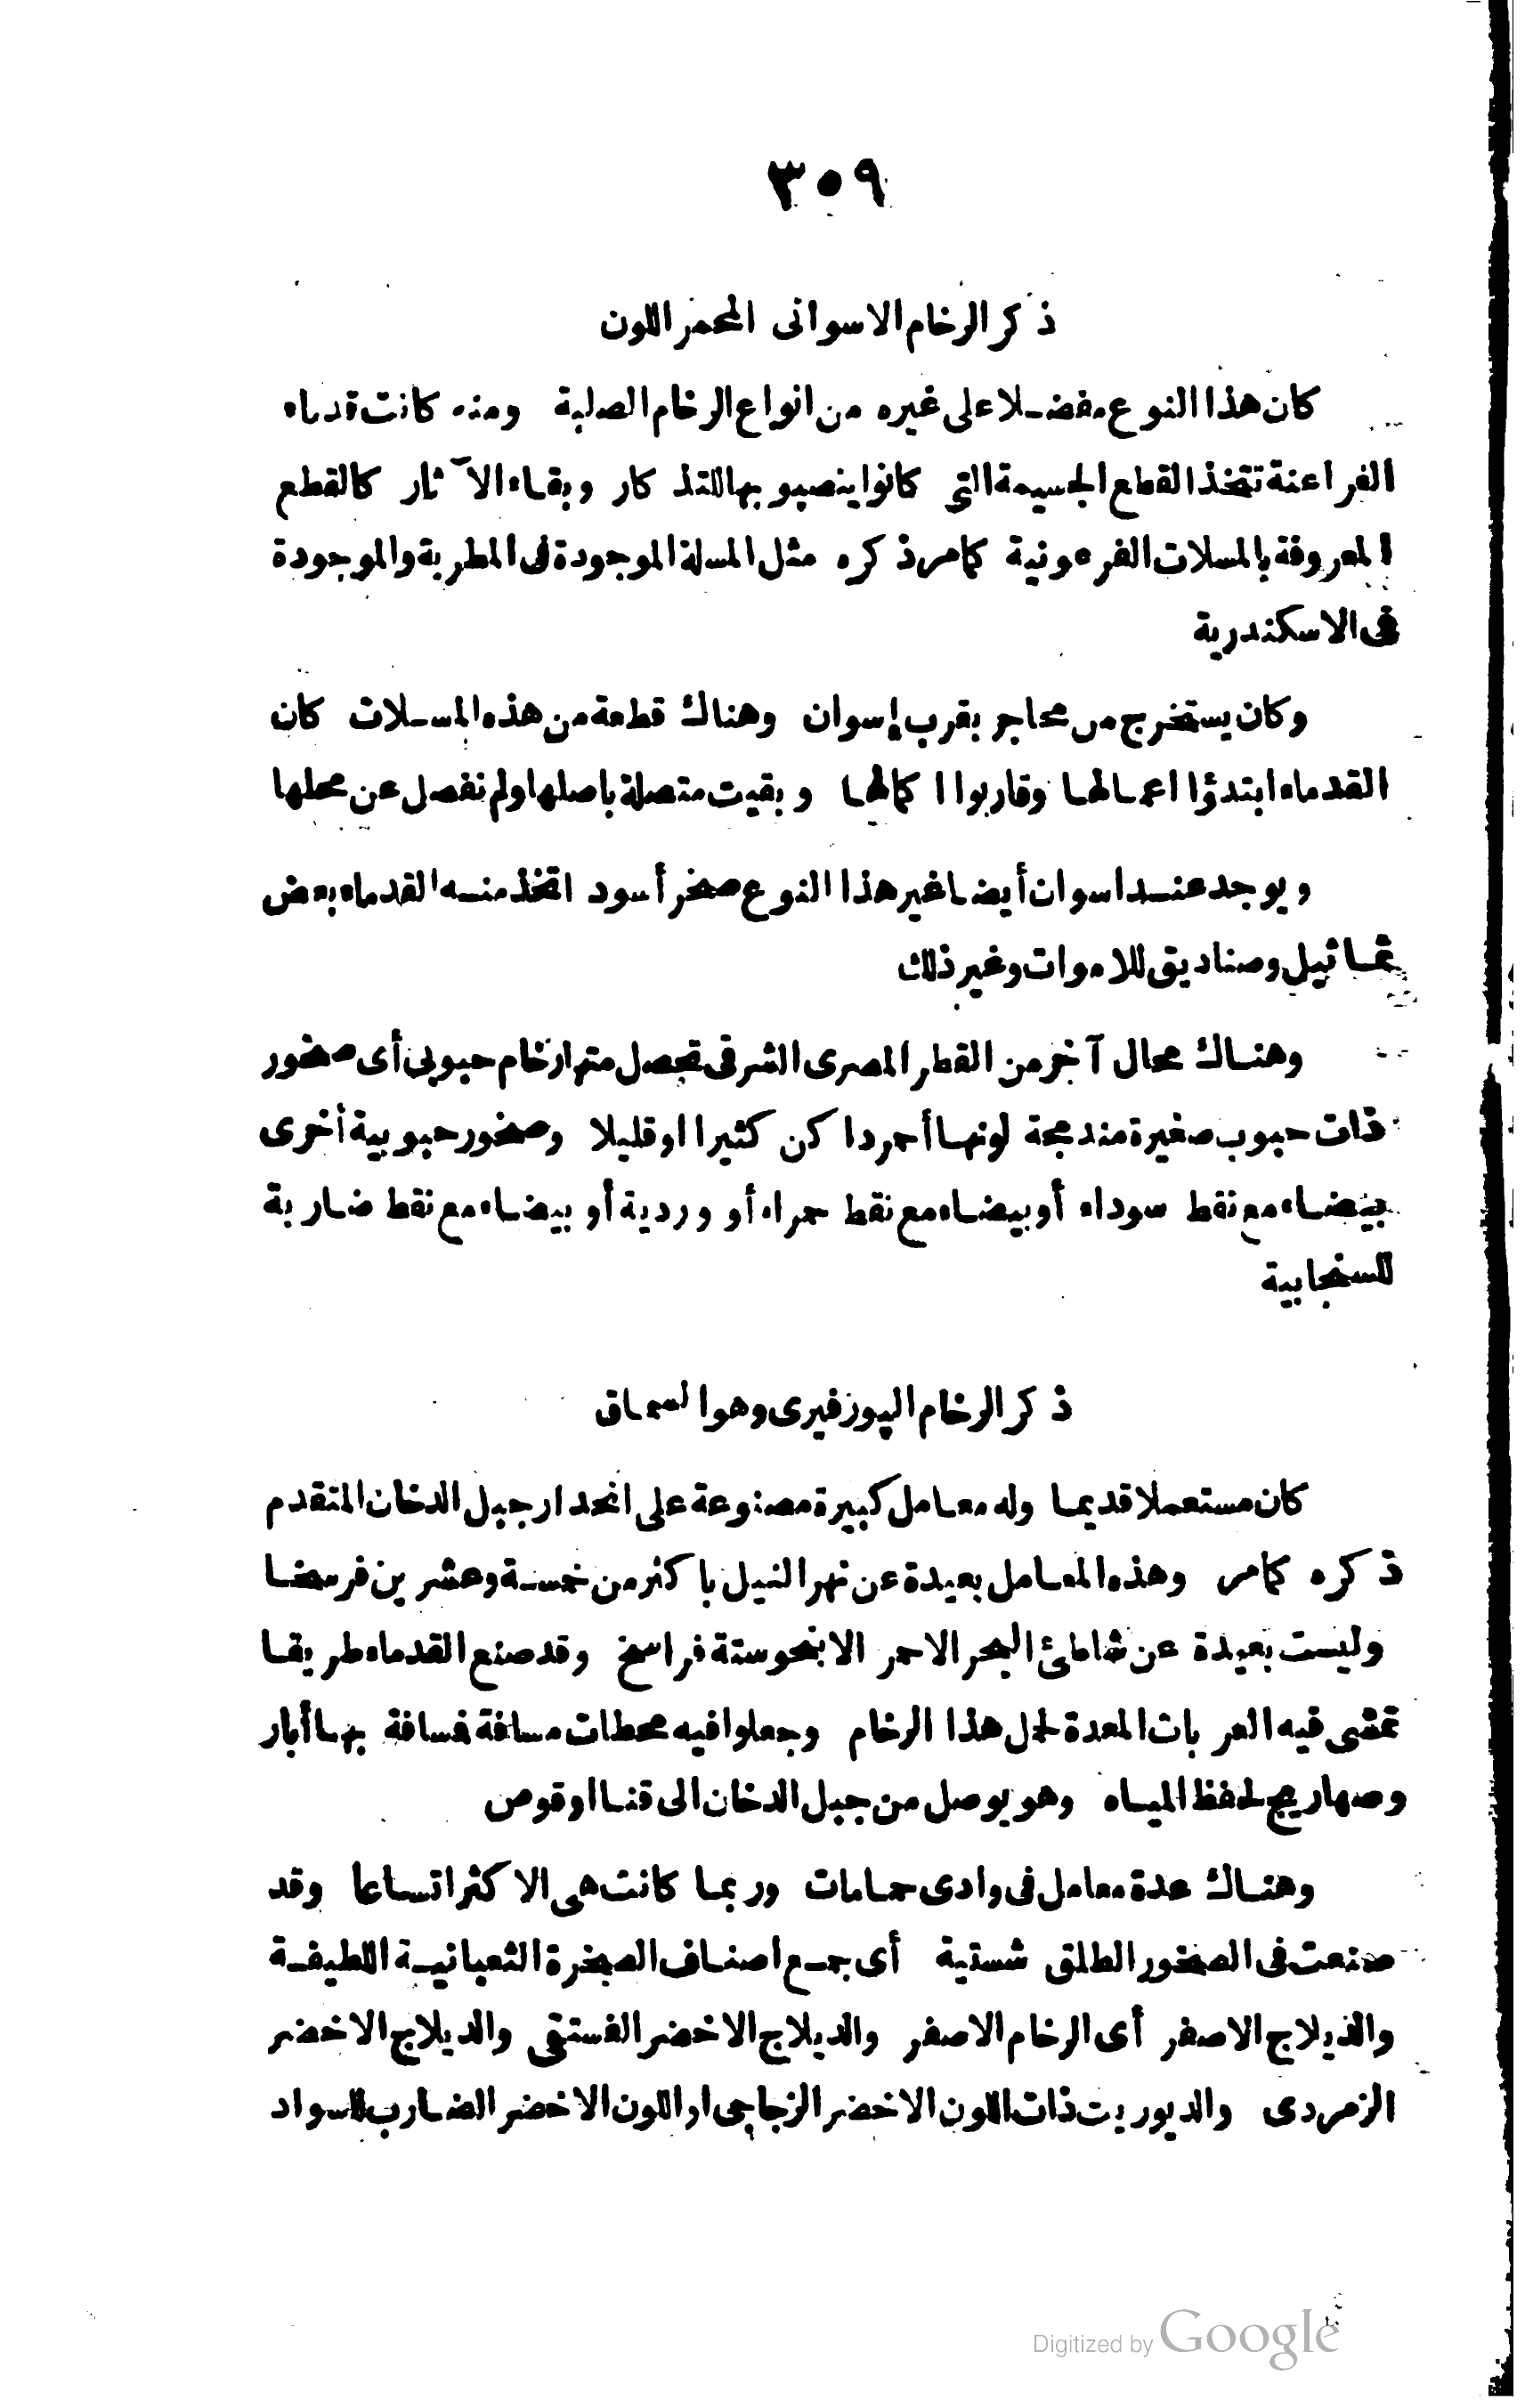 ٣٥٩
ذكر الرخام الاسوانى المحمر اللون
كان هذا النوع مفضلا على غيره من انواع الرخام الصلبة ومنه كانت قدماء
الفراعنة تتخذ القطع الجسيمة التى كانوا ينصبو بها للتذكار وبقاء الآثار كالقطع
المعروفة بالمسلات الفرعونية كمامر ذكره مثل المسلة الموجودة فى المطرية والموجودة
فى الاسكندرية
وكان يستخرج من محاجر بقرب إسوان وهناك قطعة من هذه المسلات كان
القدماء ابتدؤا اعمالها وقاربوا اكمالها وبقيت متصلة باصلها ولم نفصل عن محلها
ويوجد عند اسوان أيضا غير هذا النوع صخر أسود اتخذ منه القدماء بعض
تماثيل وصناديق للاموات وغير ذلك
وهناك محال آخر من القطر المصرى الشرقى تحصل منها رخام حبوبى أى صخور
ذات حبوب صغيرة مندمجة لونها أحمر داكن كثيرا اوقليلا وصخور حبوبية أخرى
بيضاء مع نقط سوداء أو بيضاء مع نقط حمراء أو وردية أو بيضاء مع نقط ضاربة
للسنجابية
ذكر الرخام الپورفيرى وهو السماق
كان مستعملا قديما وله معامل كبيرة مصنوعة على انحدار جبل الدخان المتقدم
ذكره كمامر وهذه المعامل بعيدة عن نهر النيل باكثر من خمسة وعشرين فرسخا
وليست بعيدة عن شاطئ البحر الاحمر الا بنحو ستة فراسخ وقد صنع القدماء طريقا
تمشى فيه العربات المعدة لحمل هذا الرخام وجعلوا فيه محطات مسافة فسافة بها أبار
وصهاريج لحفظ المياه وهو يوصل من جبل الدخان الى قنا اوقوص
وهناك عدة معامل فى وادى حمامات وربما كانت هى الاكثر اتساعا وقد
صنعت فى الصخور الطلق شستية أى جمع اصناف الصخرة الثعبانية اللطيفة
والذيلاج الاصفر أى الرخام الاصفر والديلاج الاخضر الفستقى والديلاج الاخضر
الزمردى والديوريت ذات اللون الاخضر الزجاجى او اللون الاخضر الضارب للسواد
Digitized by Google